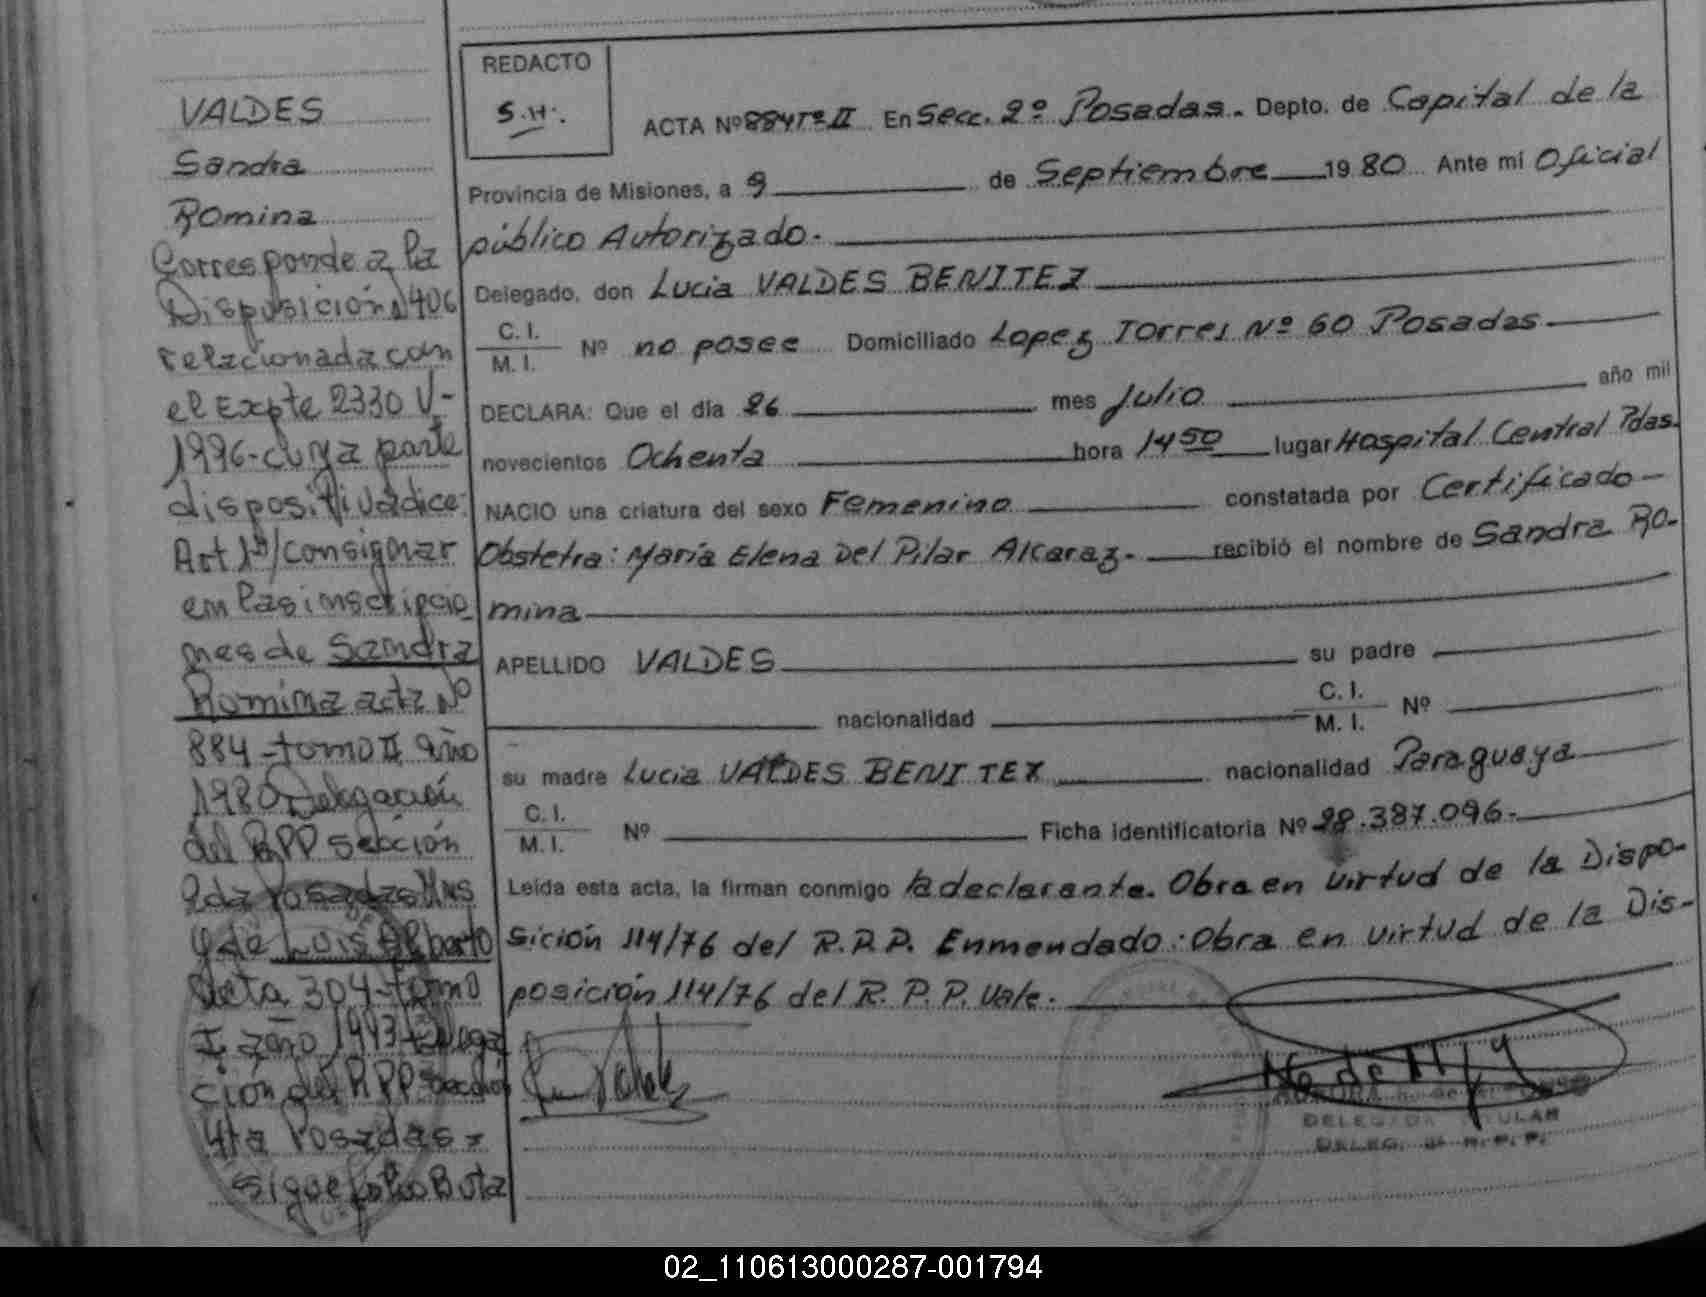 VALDES
Sandra
Romina
Corresponde a la
Disposición N 406
relacionada con
el Expte 2330 V-
1996-cuya parte
dispositiva dice:
Art 1º/consignar
en las inscripcio_
nes de Sandra
Romina acta Nº
884-tomo II año
1980 Delegación
del RPP sección
2da Posadas Mns
y de Luis Alberto
acta 304-tomo
I año 1993 Delega
ción del RPP sección
4ta Posadas-
sigue folio Bota
REDACTO
S.H.
ACTA Nº 884 Tº II En Secc. 2º Posadas. Depto. de Capital de la
Provincia de Misiones, a 9 de Septiembre 1980 Ante mi Oficial
público Autorizado.
Delegado, don Lucia VALDES BENITEZ
C. I.
M. I. Nº no posee Domiciliado Lopez Torres Nº 60 Posadas
DECLARA: Que el día 26 mes Julio año mil
novecientos Ochenta hora 14 50 lugar Hospital Central Pdas.
NACIO una criatura del sexo Femenino constatada por Certificado
Obstetra: María Elena Del Pilar Alcaraz. recibió el nombre de Sandra Ro-
mina
APELLIDO VALDES su padre
nacionalidad C. I.
M. I. Nº
su madre Lucia VALDES BENITEZ nacionalidad Paraguaya
C. I.
M. I. Nº Ficha identificatoria Nº 28.387.096.-
Leída esta acta, la firman conmigo la declarante. Obra en virtud de la Dispo-
sición 114/76 del R.P.P. Enmendado: Obra en virtud de la Dis-
posición 114/76 del R.P.P. Vale.
DELEGADA TITULAR
DELEG. 2ª R. P. P.
02_110613000287-001794